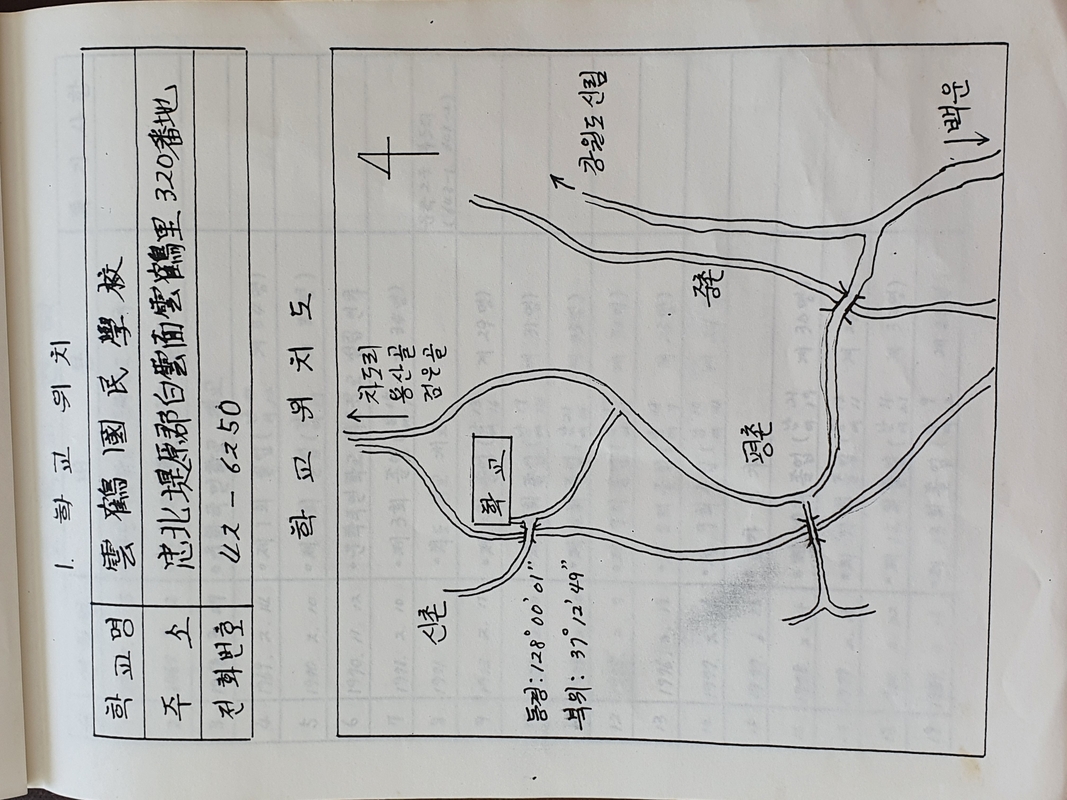 1. 학교 위치
학교명 雲鶴國民學校
주소 忠北堤原郡白雲面雲鶴里 320番地
전화번호 42-6250
학교위치도
차도리
용산골
검은골
강원도 신림
백운
중촌
학교
평촌
신촌
동경: 128° 00' 01"
북위: 37° 12' 49"